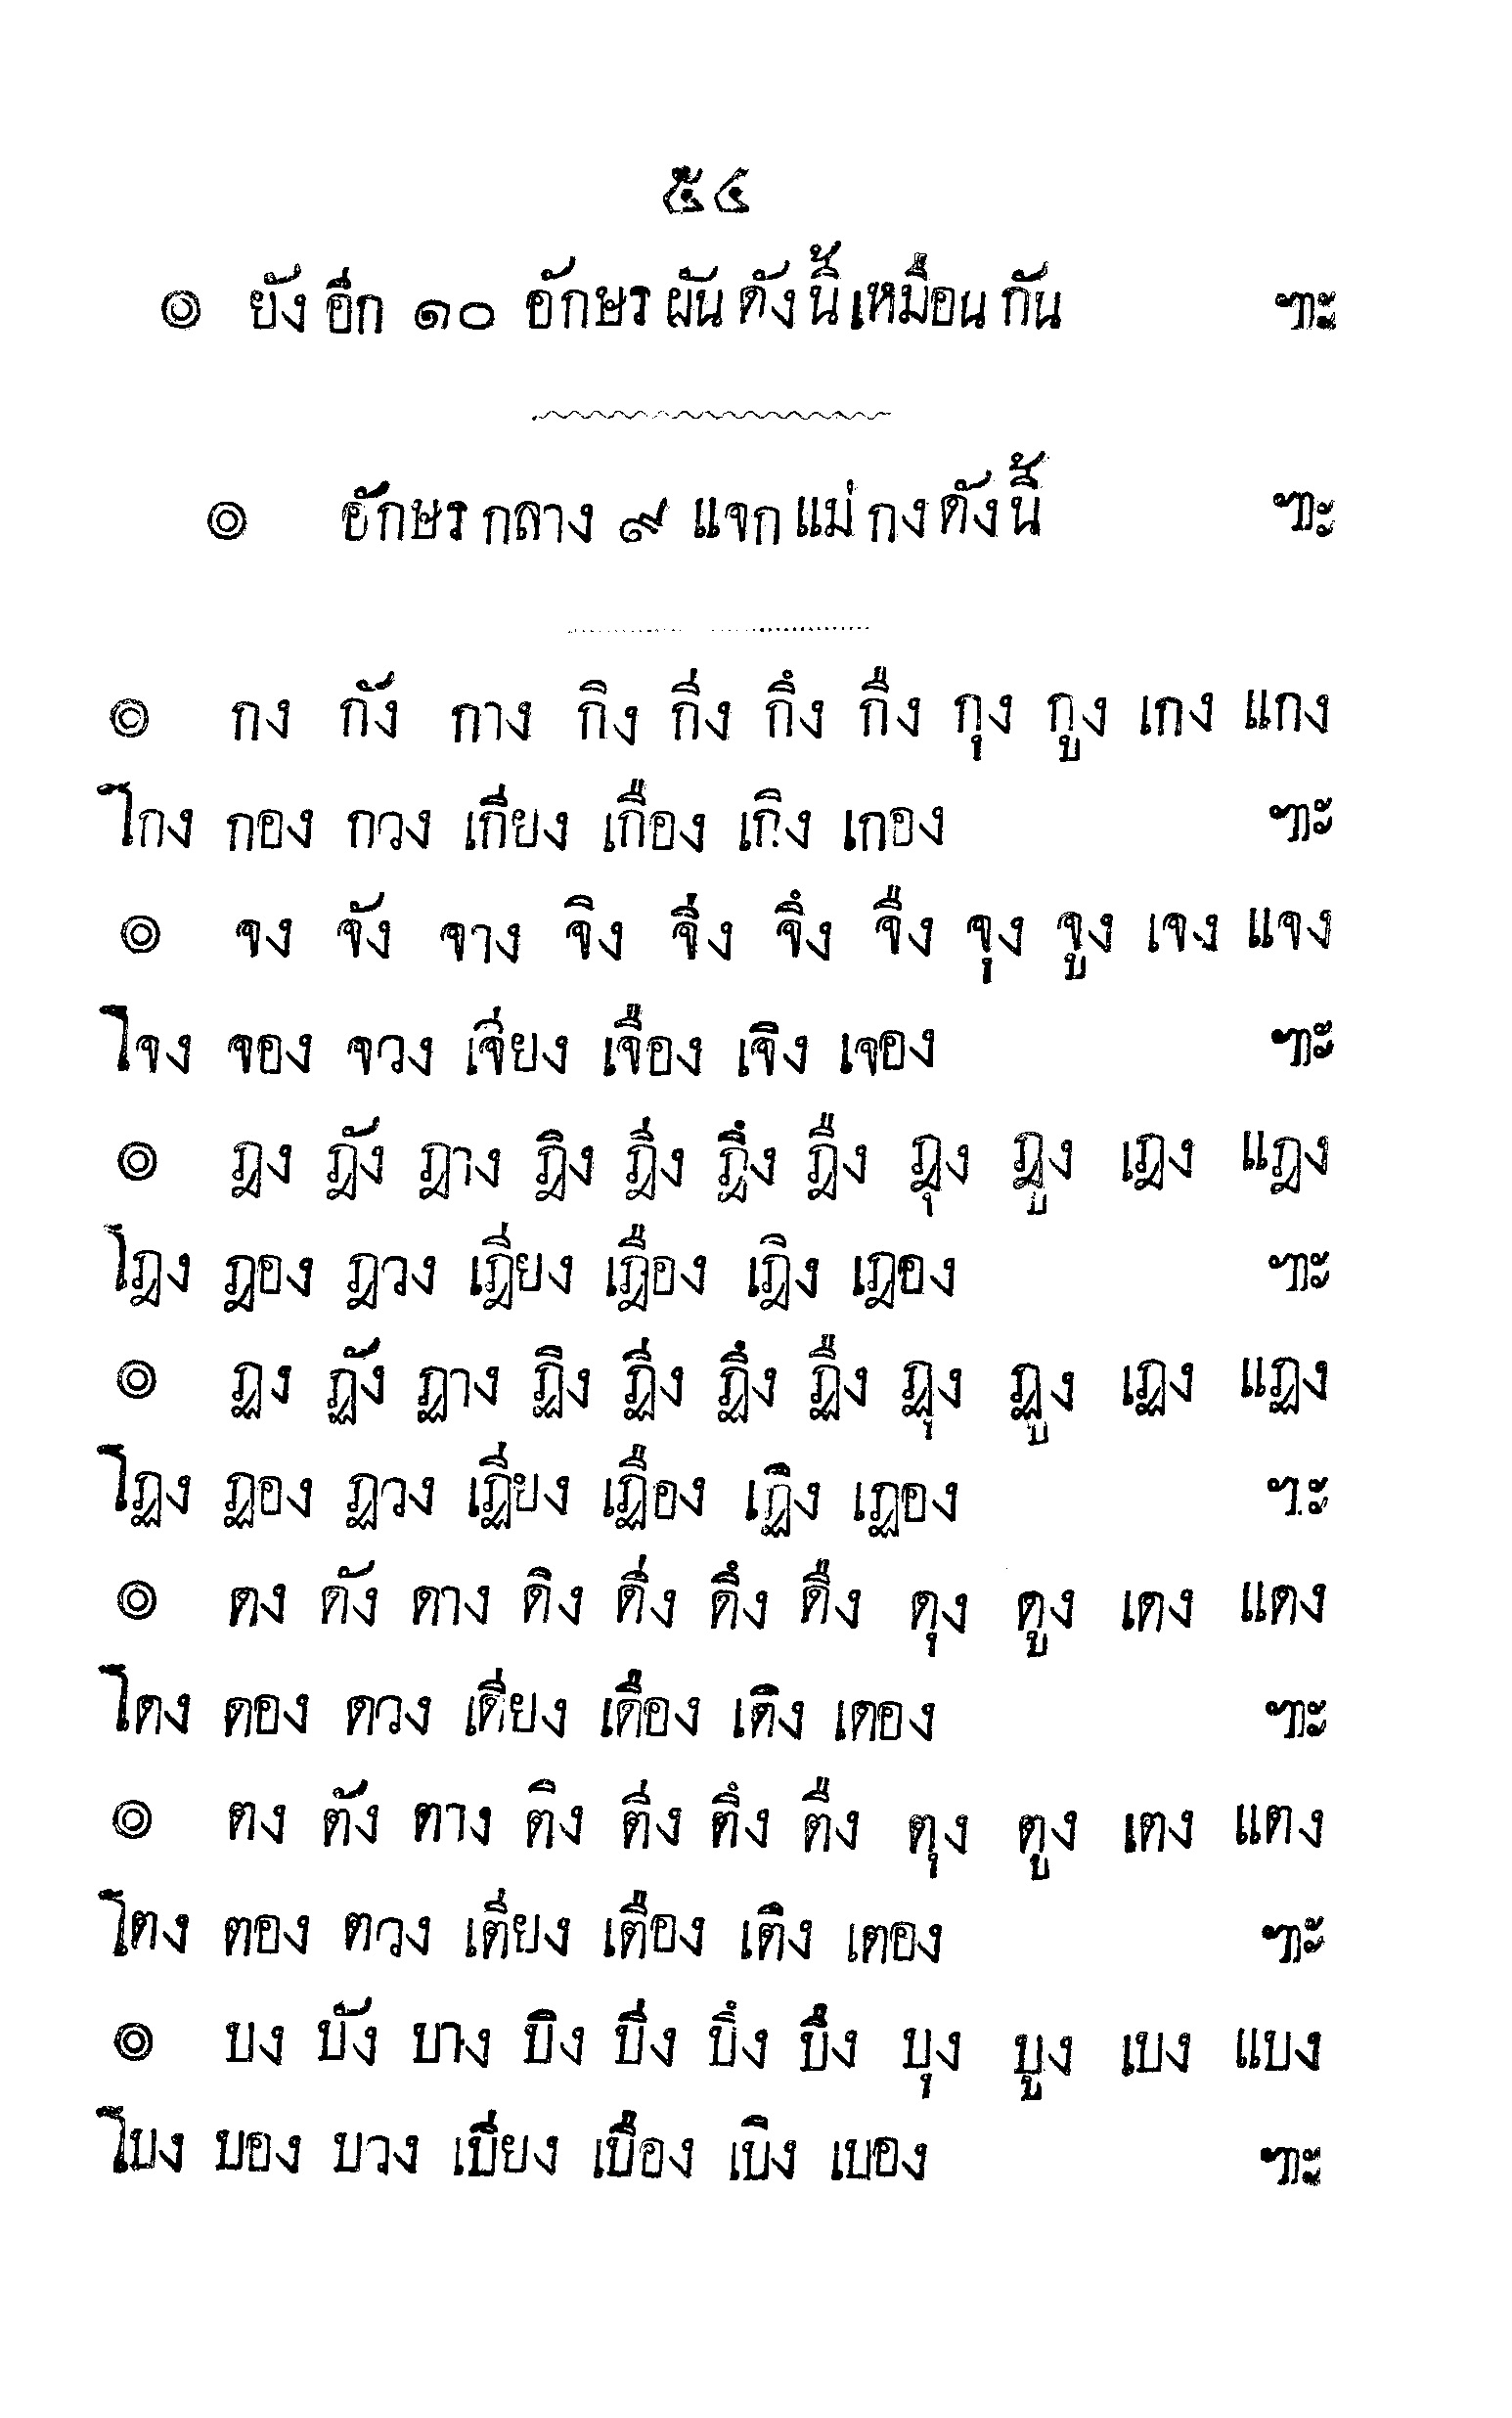 ๕๔
๏ ยัง อีก ๑๐ อักษร ผัน ดัง นี้ เหมือน กัน ๚ะ
๏ อักษร กลาง ๙ แจก แม่ กง ดัง นี้ ๚ะ
๏ กง กัง กาง กิง กีง กึง กืง กุง กูง เกง แกง
โกง กอง กวง เกียง เกือง เกิง เกอง ๚ะ
๏ จง จัง จาง จิง จีง จึง จืง จุง จูง เจง แจง
โจง จอง จวง เจียง เจือง เจิง เจอง ๚ะ
๏ ฎง ฎัง ฎาง ฎิง ฎีง ฎึง ฎืง ฎุง ฎูง เฎง แฎง
โฎง ฎอง ฎวง เฎียง เฎือง เฎิง เฎอง ๚ะ
๏ ฏง ฏัง ฏาง ฏิง ฏีง ฏึง ฏืง ฏุง ฏูง เฏง แฏง
โฏง ฏอง ฏวง เฏียง เฏือง เฏิง เฏอง ๚ะ
๏ ดง ดัง ดาง ดิง ดีง ดึง ดืง ดุง ดูง เดง แดง
โดง ดอง ดวง เดียง เดือง เดิง เดอง ๚ะ
๏ ตง ตัง ตาง ติง ตีง ตึง ตืง ตุง ตูง เตง แตง
โตง ตอง ตวง เตียง เตือง เติง เตอง ๚ะ
๏ บง บัง บาง บิง บีง บึง บืง บุง บูง เบง แบง
โบง บอง บวง เบียง เบือง เบิง เบอง ๚ะ